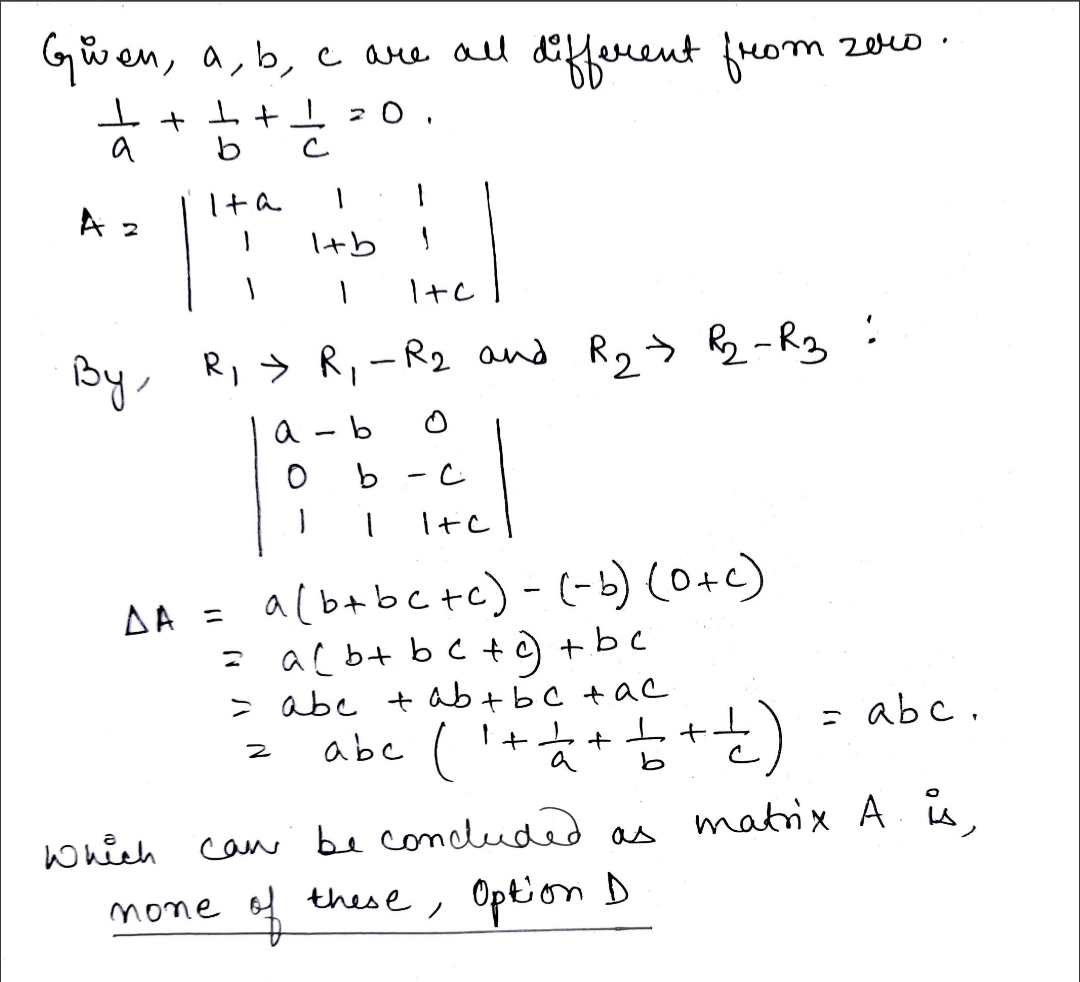 Given, a, b, c are all different from zero.
1/a + 1/b + 1/c = 0.
A = | 1+a 1 1 |
| 1 1+b 1 |
| 1 1 1+c |
By, R₁ → R₁ - R₂ and R₂ → R₂ - R₃ :
| a -b 0 |
| 0 b -c |
| 1 1 1+c |
ΔA = a(b+bc+c) - (-b) (0+c)
= a(b+bc+c) + bc
= abc + ab + bc + ac
= abc (1 + 1/a + 1/b + 1/c) = abc.
Which can be concluded as matrix A is,
none of these, Option D